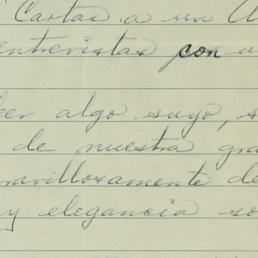 Cartas a un
entrevistas con u
er algo suyo, s
de nuestra gra
aravillosamente de
y elegancia so